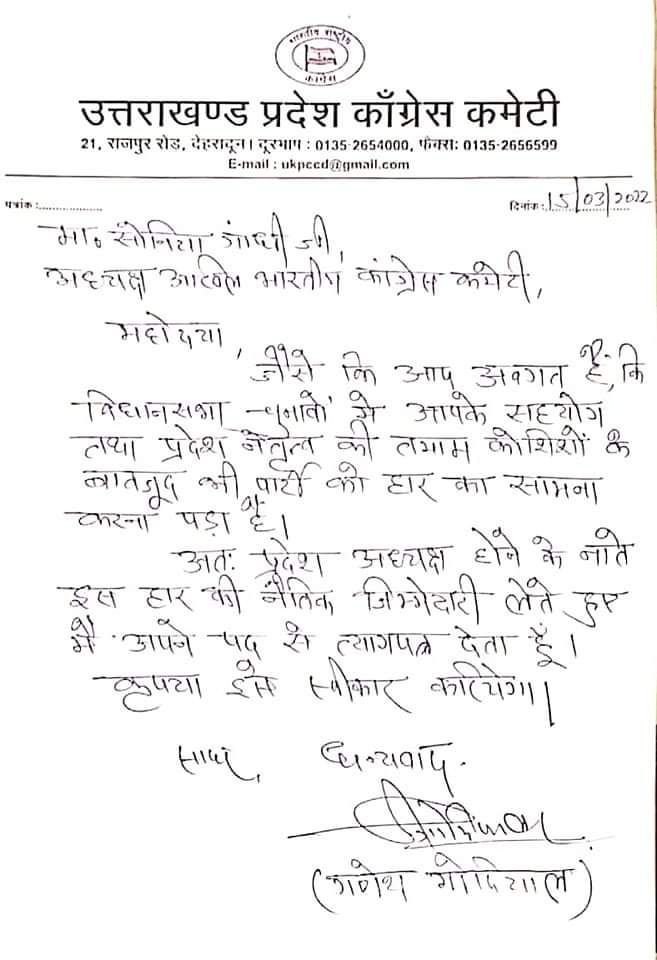 भारतीय राष्ट्रीय
काँग्रेस
उत्तराखण्ड प्रदेश काँग्रेस कमेटी
21, राजपुर रोड, देहरादून। दूरभाष : 0135-2654000, फैक्सः 0135-2656599
E-mail : ukpccd@gmail.com
पत्रांक:................
दिनांक: 15/03/2022
मा० सोनिया गांधी जी,
अध्यक्ष अखिल भारतीय कांग्रेस कमेटी,
महोदया,
जैसे कि आप अवगत हैं, कि
विधानसभा चुनावों में आपके सहयोग
तथा प्रदेश नेतृत्व की तमाम कोशिशों के
बावजूद भी पार्टी को हार का सामना
करना पड़ा है।
अतः प्रदेश अध्यक्ष होने के नाते
इस हार की नैतिक जिम्मेदारी लेते हुए
मैं अपने पद से त्यागपत्र देता हूँ।
कृपया इसे स्वीकार करियेगा।
सादर, धन्यवाद.
(गणेश गोदियाल)